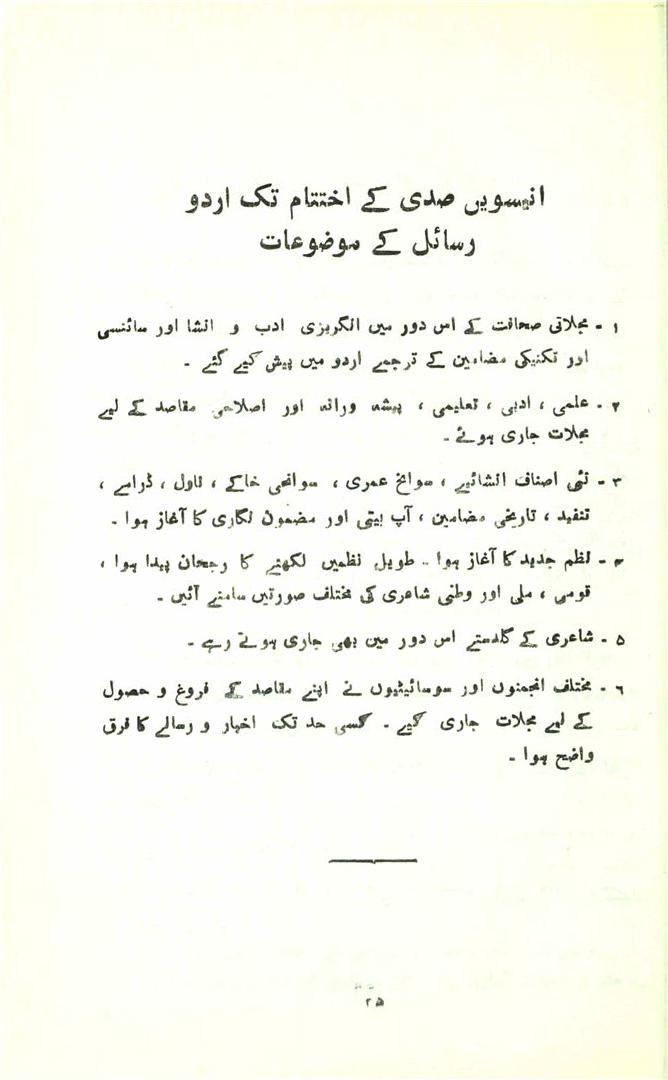 انیسویں صدی کے اختتام تک اردو
رسائل کے موضوعات
۱ - مجلاتی صحافت کے اس دور میں انگریزی ادب و انشا اور سائنسی
اور تکنیکی مضامین کے ترجمے اردو میں پیش کیے گئے ۔
۲ - علمی ، ادبی ، تعلیمی ، پیشہ ورانہ اور اصلاحی مقاصد کے لیے
مجلات جاری ہوئے ۔
۳ - نئی اصناف انشائیے ، سوانح عمری ، سوانحی خاکے ، ناول ، ڈرامے ،
تنقید ، تاریخی مضامین ، آپ بیتی اور مضمون نگاری کا آغاز ہوا ۔
۴ - نظم جدید کا آغاز ہوا ۔ طویل نظمیں لکھنے کا رجحان پیدا ہوا ،
قومی ، ملی اور وطنی شاعری کی مختلف صورتیں سامنے آئیں ۔
۵ - شاعری کے گلدستے اس دور میں بھی جاری ہوتے رہے ۔
۶ - مختلف انجمنوں اور سوسائیٹیوں نے اپنے مقاصد کے فروغ و حصول
کے لیے مجلات جاری کیے ۔ کسی حد تک اخبار و رسالے کا فرق
واضح ہوا ۔
۲۵